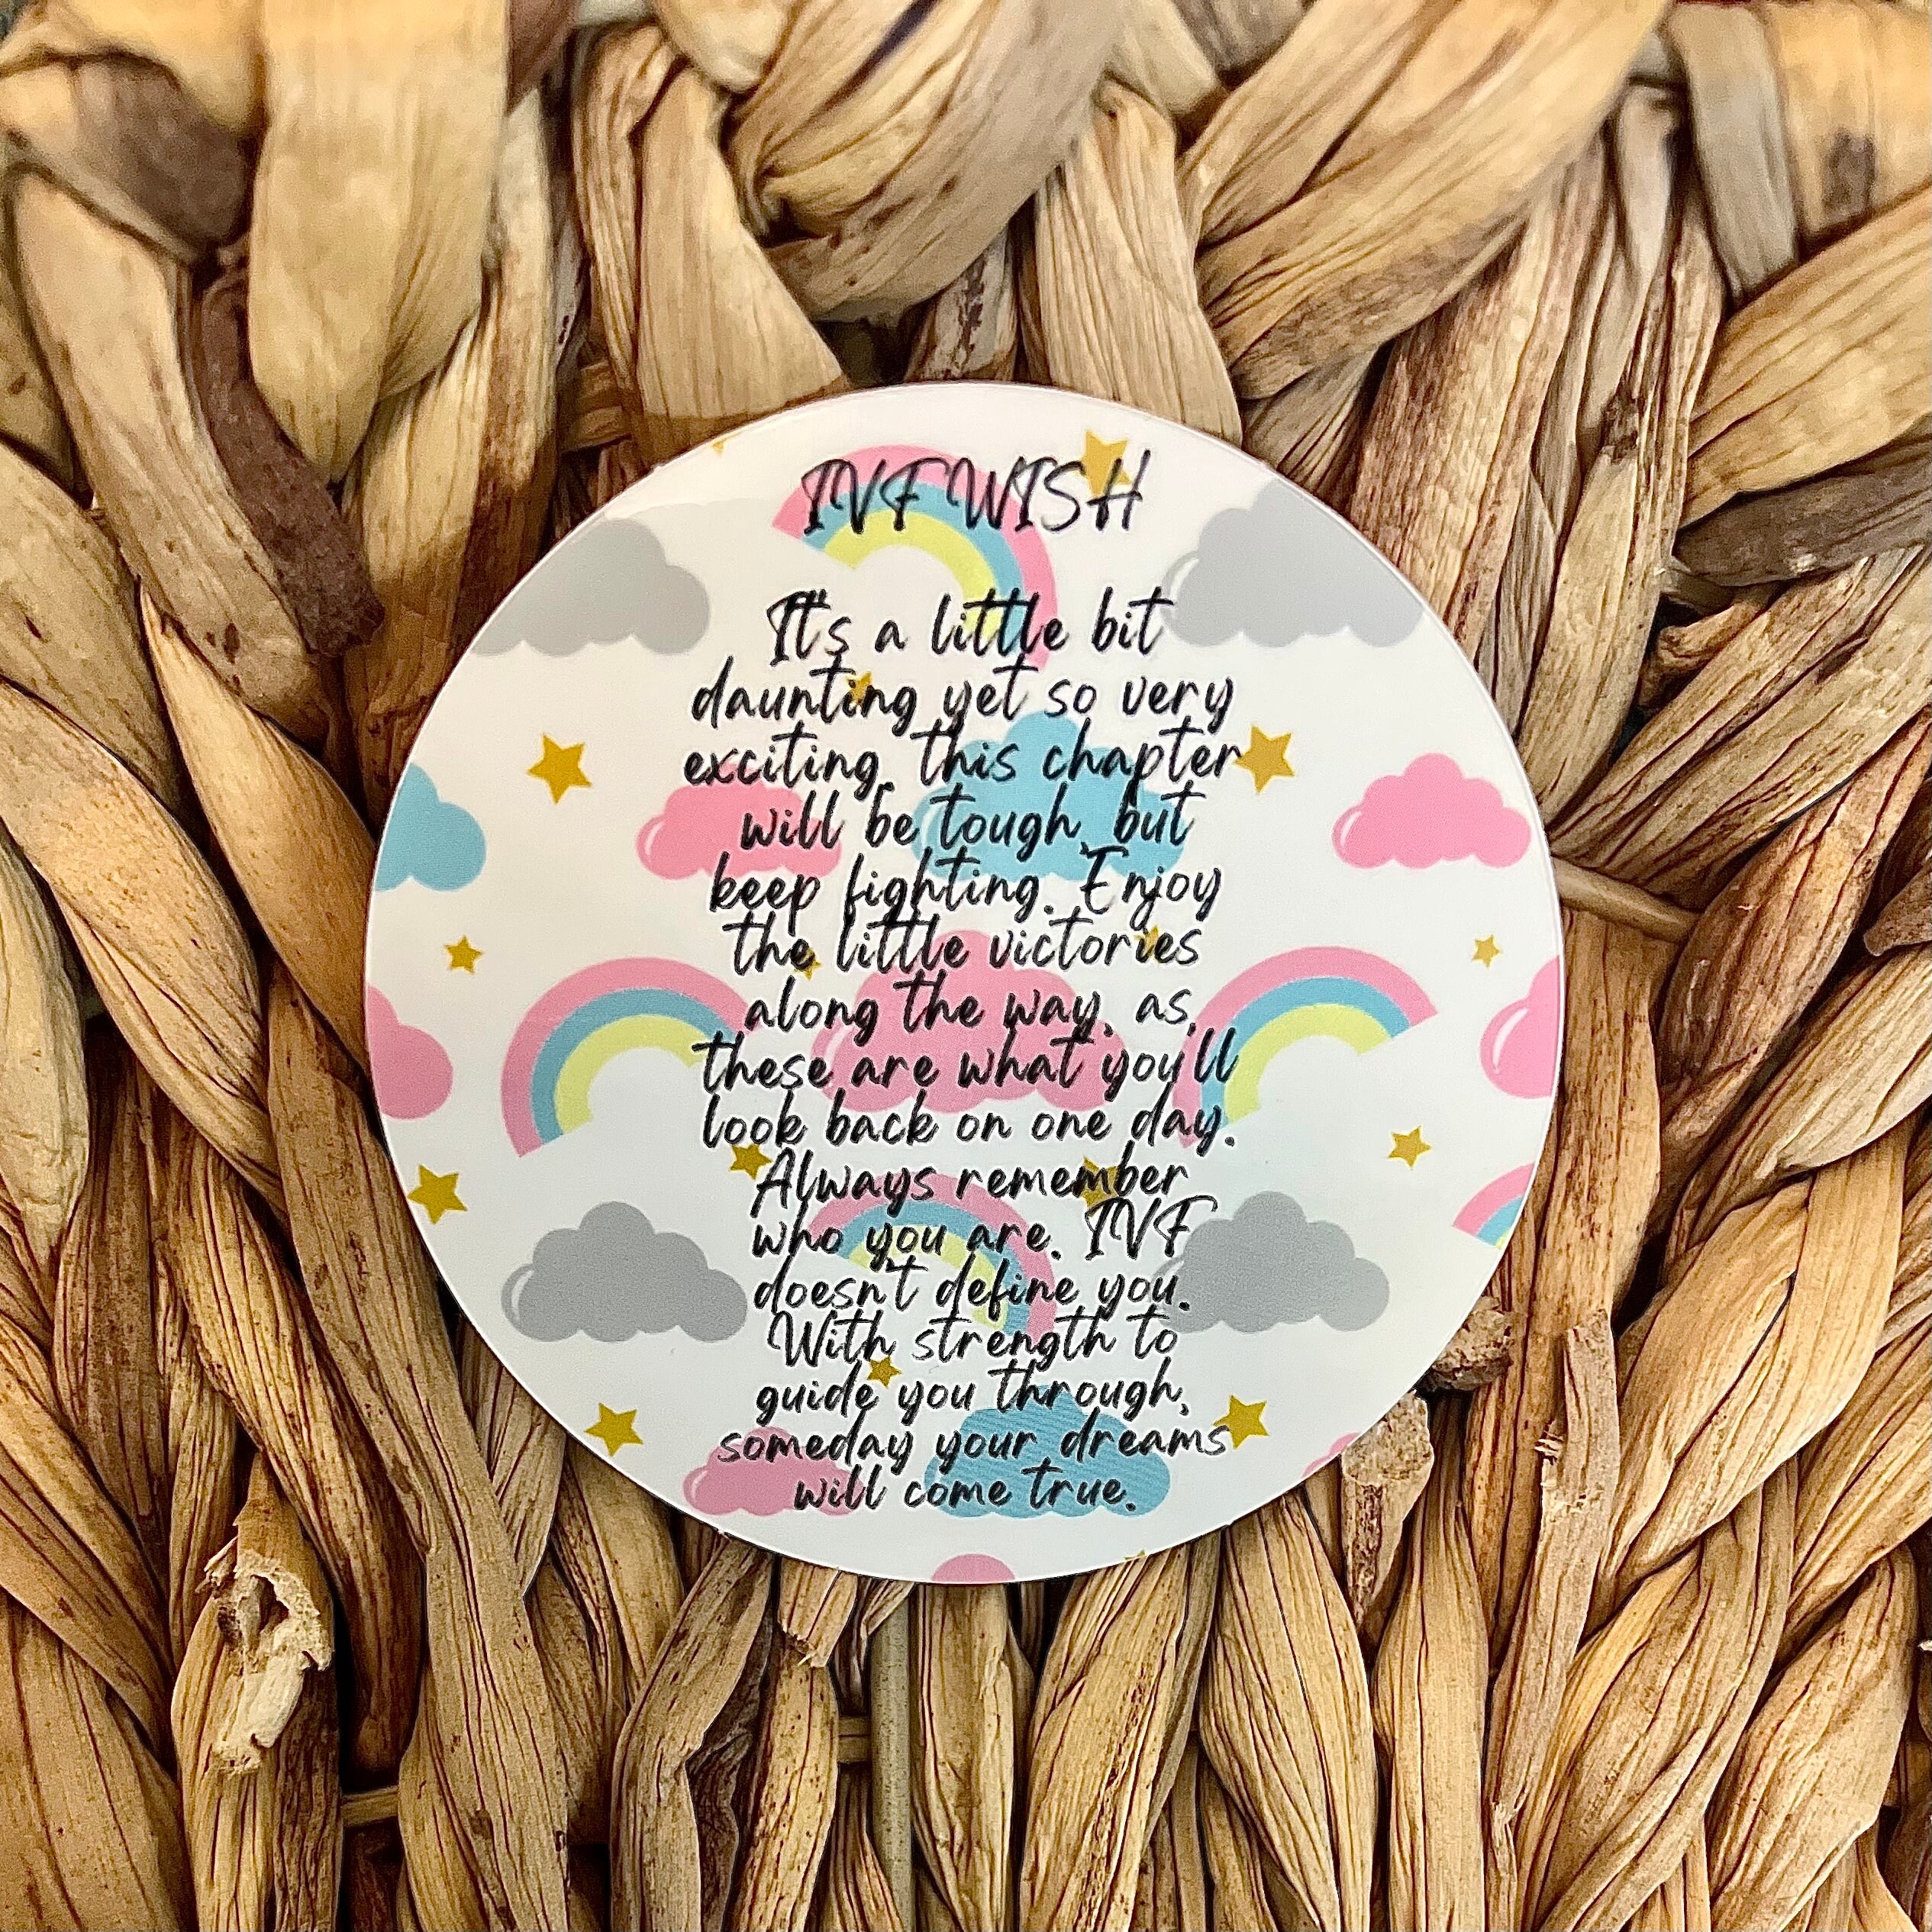 IVF WISH
It's a little bit
daunting yet so very
exciting, this chapter
will be tough, but
keep fighting. Enjoy
the little victories
along the way, as,
these are what you'll
look back on one day.
Always remember
who you are. IVF
doesn't define you.
With strength to
guide you through,
someday your dreams
will come true.